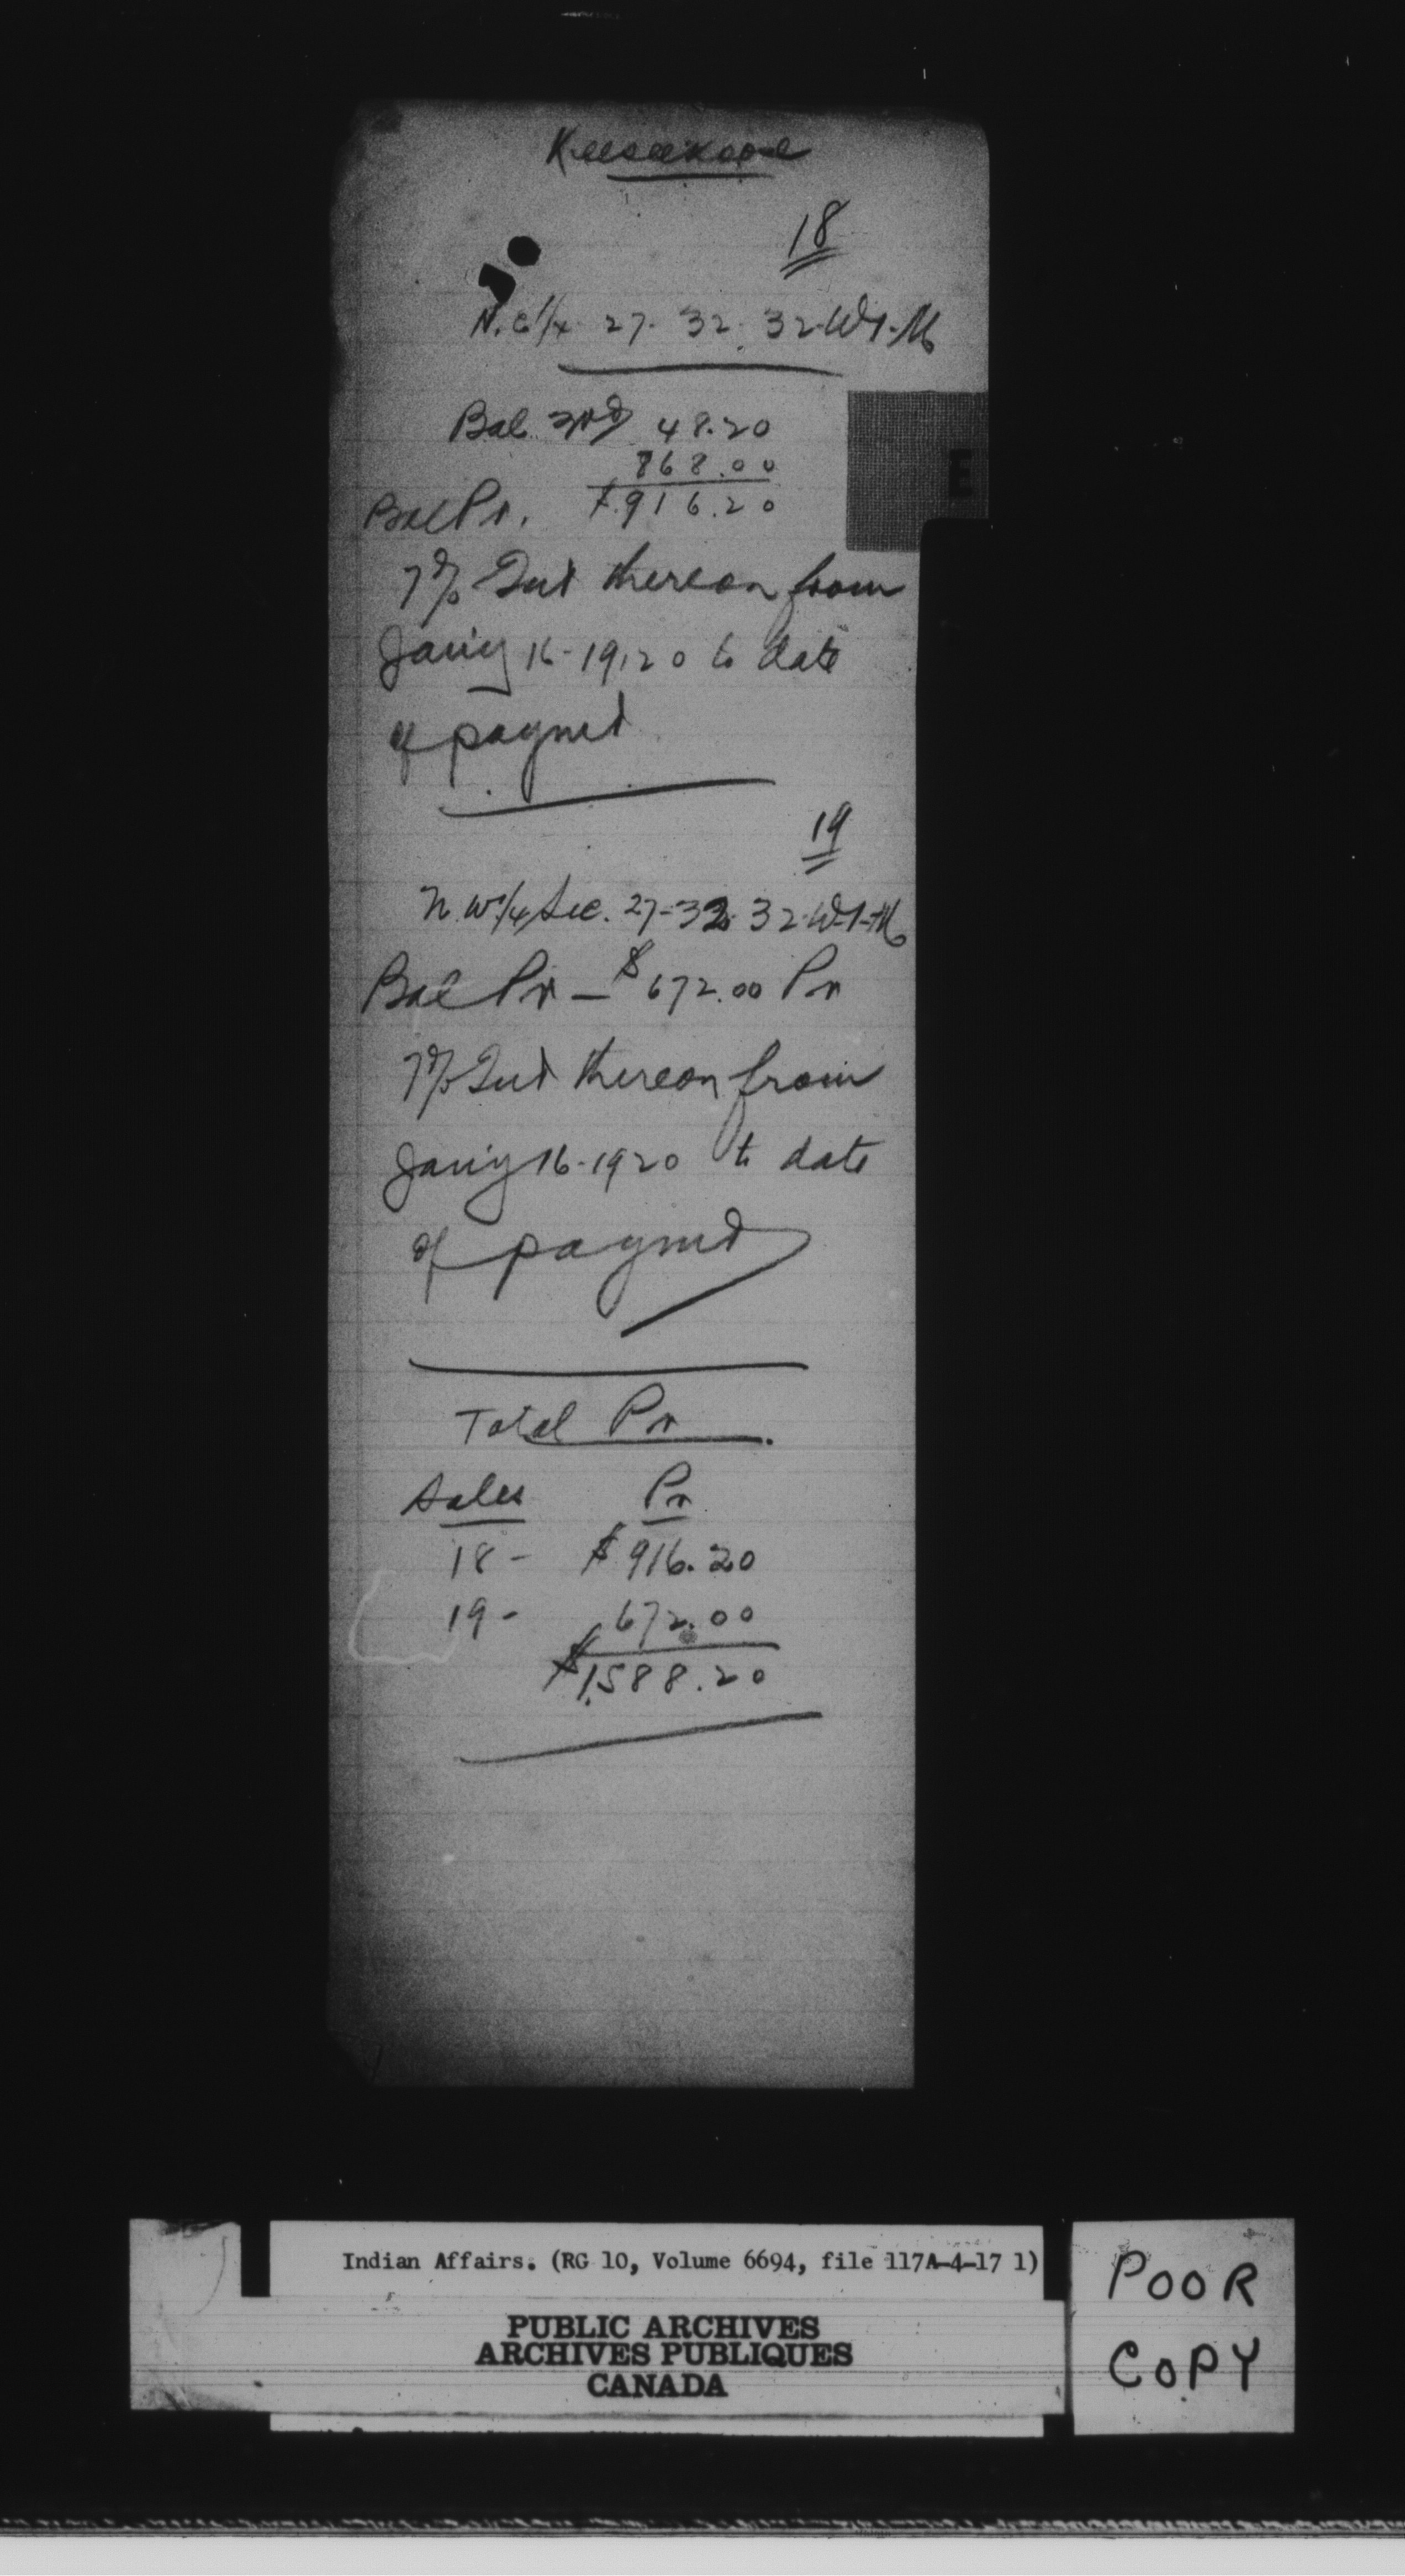 Keeseekoose
18
N.E 1/4 27-32-32-W1-M
Bal 3rd 48.20
868.00
Bal Pr. $916.20
7% Int thereon from
Jan'y 16-1920 to date
of paymt
19
N.W. 1/4 Sec. 27-32-32-W-1-M
Bal Pr - $672.00 Pr
7% Int thereon from
Jan'y 16-1920 to date
of paymt
Total Pr.
Sales Pr
18 - $916.20
19 - 672.00
$1,588.20
E
Indian Affairs. (RG 10, Volume 6694, file 117A-4-17 1)
PUBLIC ARCHIVES
ARCHIVES PUBLIQUES
CANADA
POOR
COPY